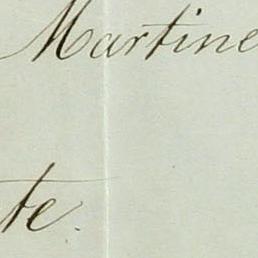 Martine
te.